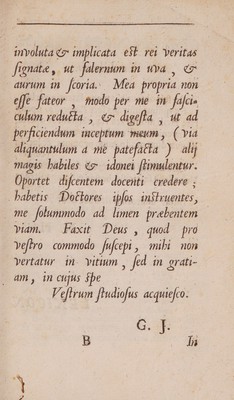 involuta & implicata eſt rei veritas
ſignatæ, ut ſalernum in uva, &
aurum in ſcoria. Mea propria non
eſſe fateor, modo per me in faſci-
culum reducta, & digeſta, ut ad
perficiendum inceptum meum, (via
aliquantulum a me patefacta) alij
magis habiles & idonei ſtimulentur.
Oportet diſcentem docenti credere;
habetis Doctores ipſos inſtruentes,
me ſolummodo ad limen præbentem
viam. Faxit Deus, quod pro
veſtro commodo ſuſcepi, mihi non
vertatur in vitium, ſed in grati-
am, in cujus ſpe
Veſtrum ſtudioſus acquieſco.
G. J.
B In